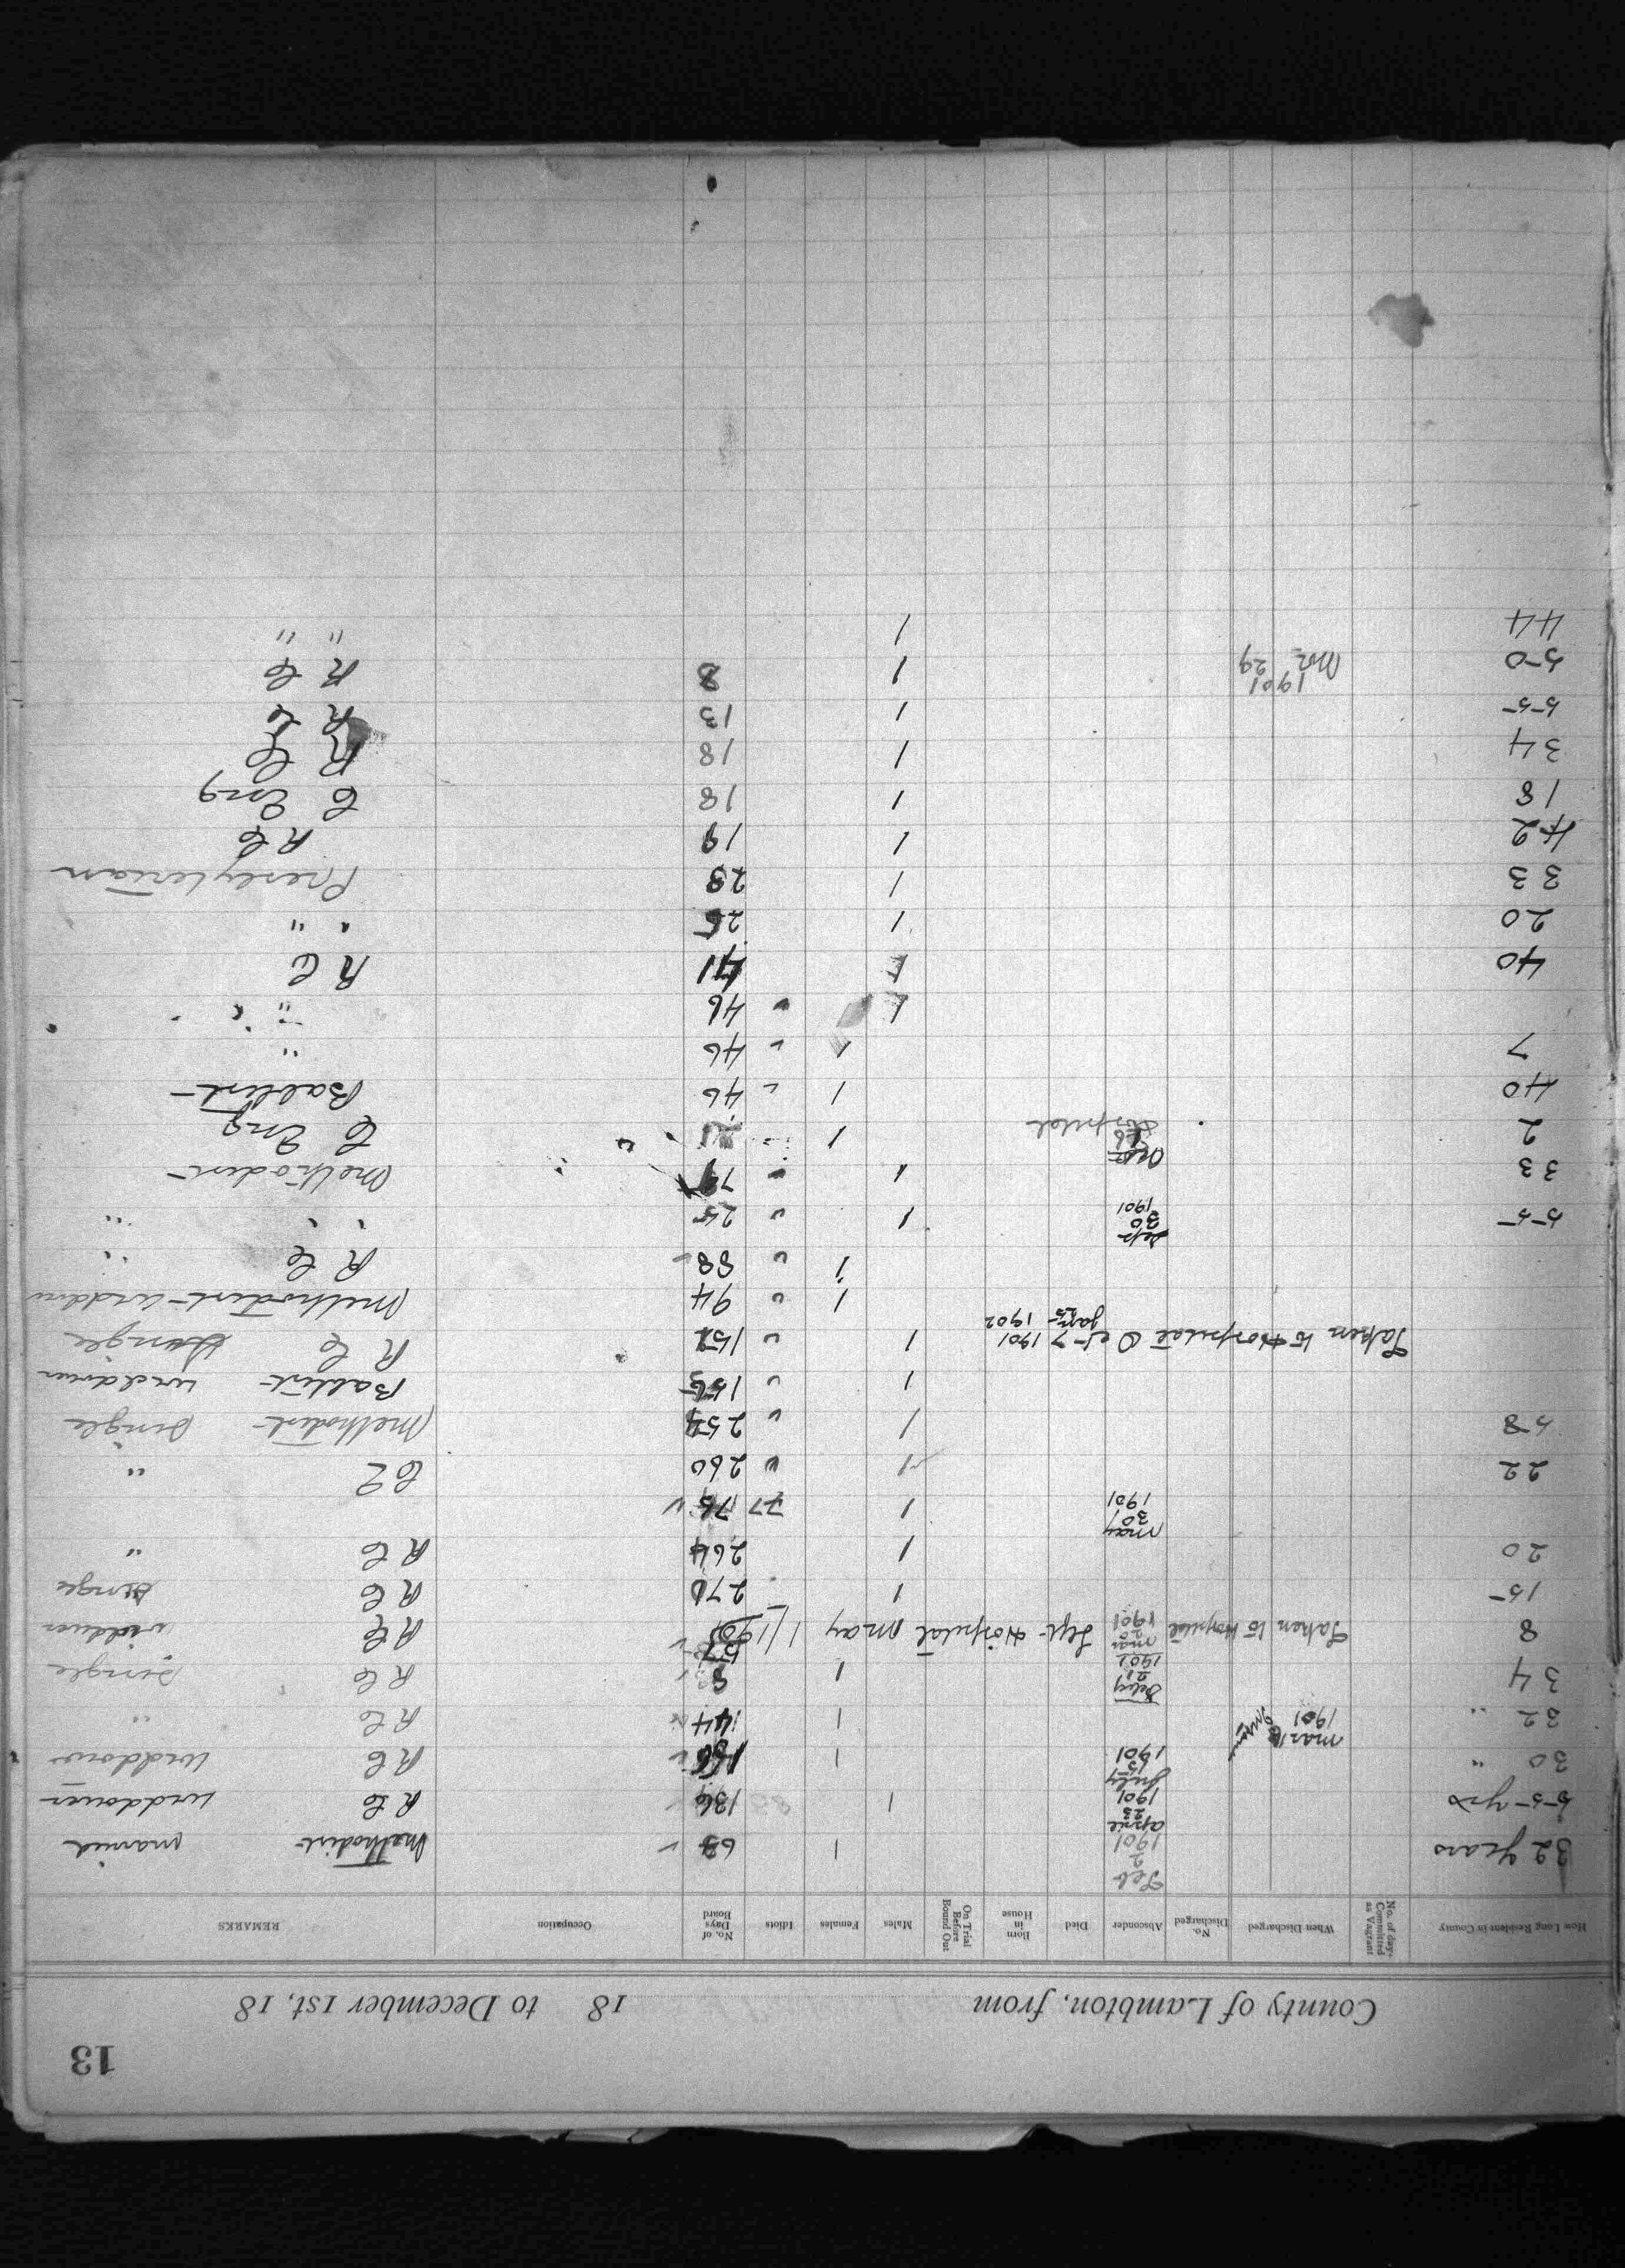 13
County of Lambton, from 18 to December 1st, 18
How Long Resident in County No. of days Committed as Vagrant When Discharged No. Discharged Absconder Died Born in House On Trial Before Bound Out Males Females Idiots No. of Days Board Occupation REMARKS
32 years Feb 2 1901 1 Methodist married
55 yrs April 23 1901 1 136 R C widdower
30 " July 15 1901 1 R C widdower
32 " Mar 1901 1 144 R C "
34 1901 1 8 R C Single
8 Taken to Hospital Mar 20 1901 Sept Hospital May 1/1901 57 R C widdower
15 1 270 R C Single
20 1 264 R C "
May 30 1901 1 77
22 1 260 "
58 1 Methodist Single
1 Baptist widdower
Taken to Hospital Oct 7 1901 Jan 25 1902 1 R C Single
1 94 Methodist
1 88 R C "
55 Sep 30 1901 1 " "
33 1 79 Methodist
2 Hospital 1 C Eng
40 1 46 Baptist
7 1 46 "
46 "
40 41 R C
20 1 25 " "
33 1 28 Presbyterian
42 1 19 R C
18 1 18 C Eng
34 1 18 R C
55 1 13 R C
50 1901 29 1 8 R C
44 1 " "